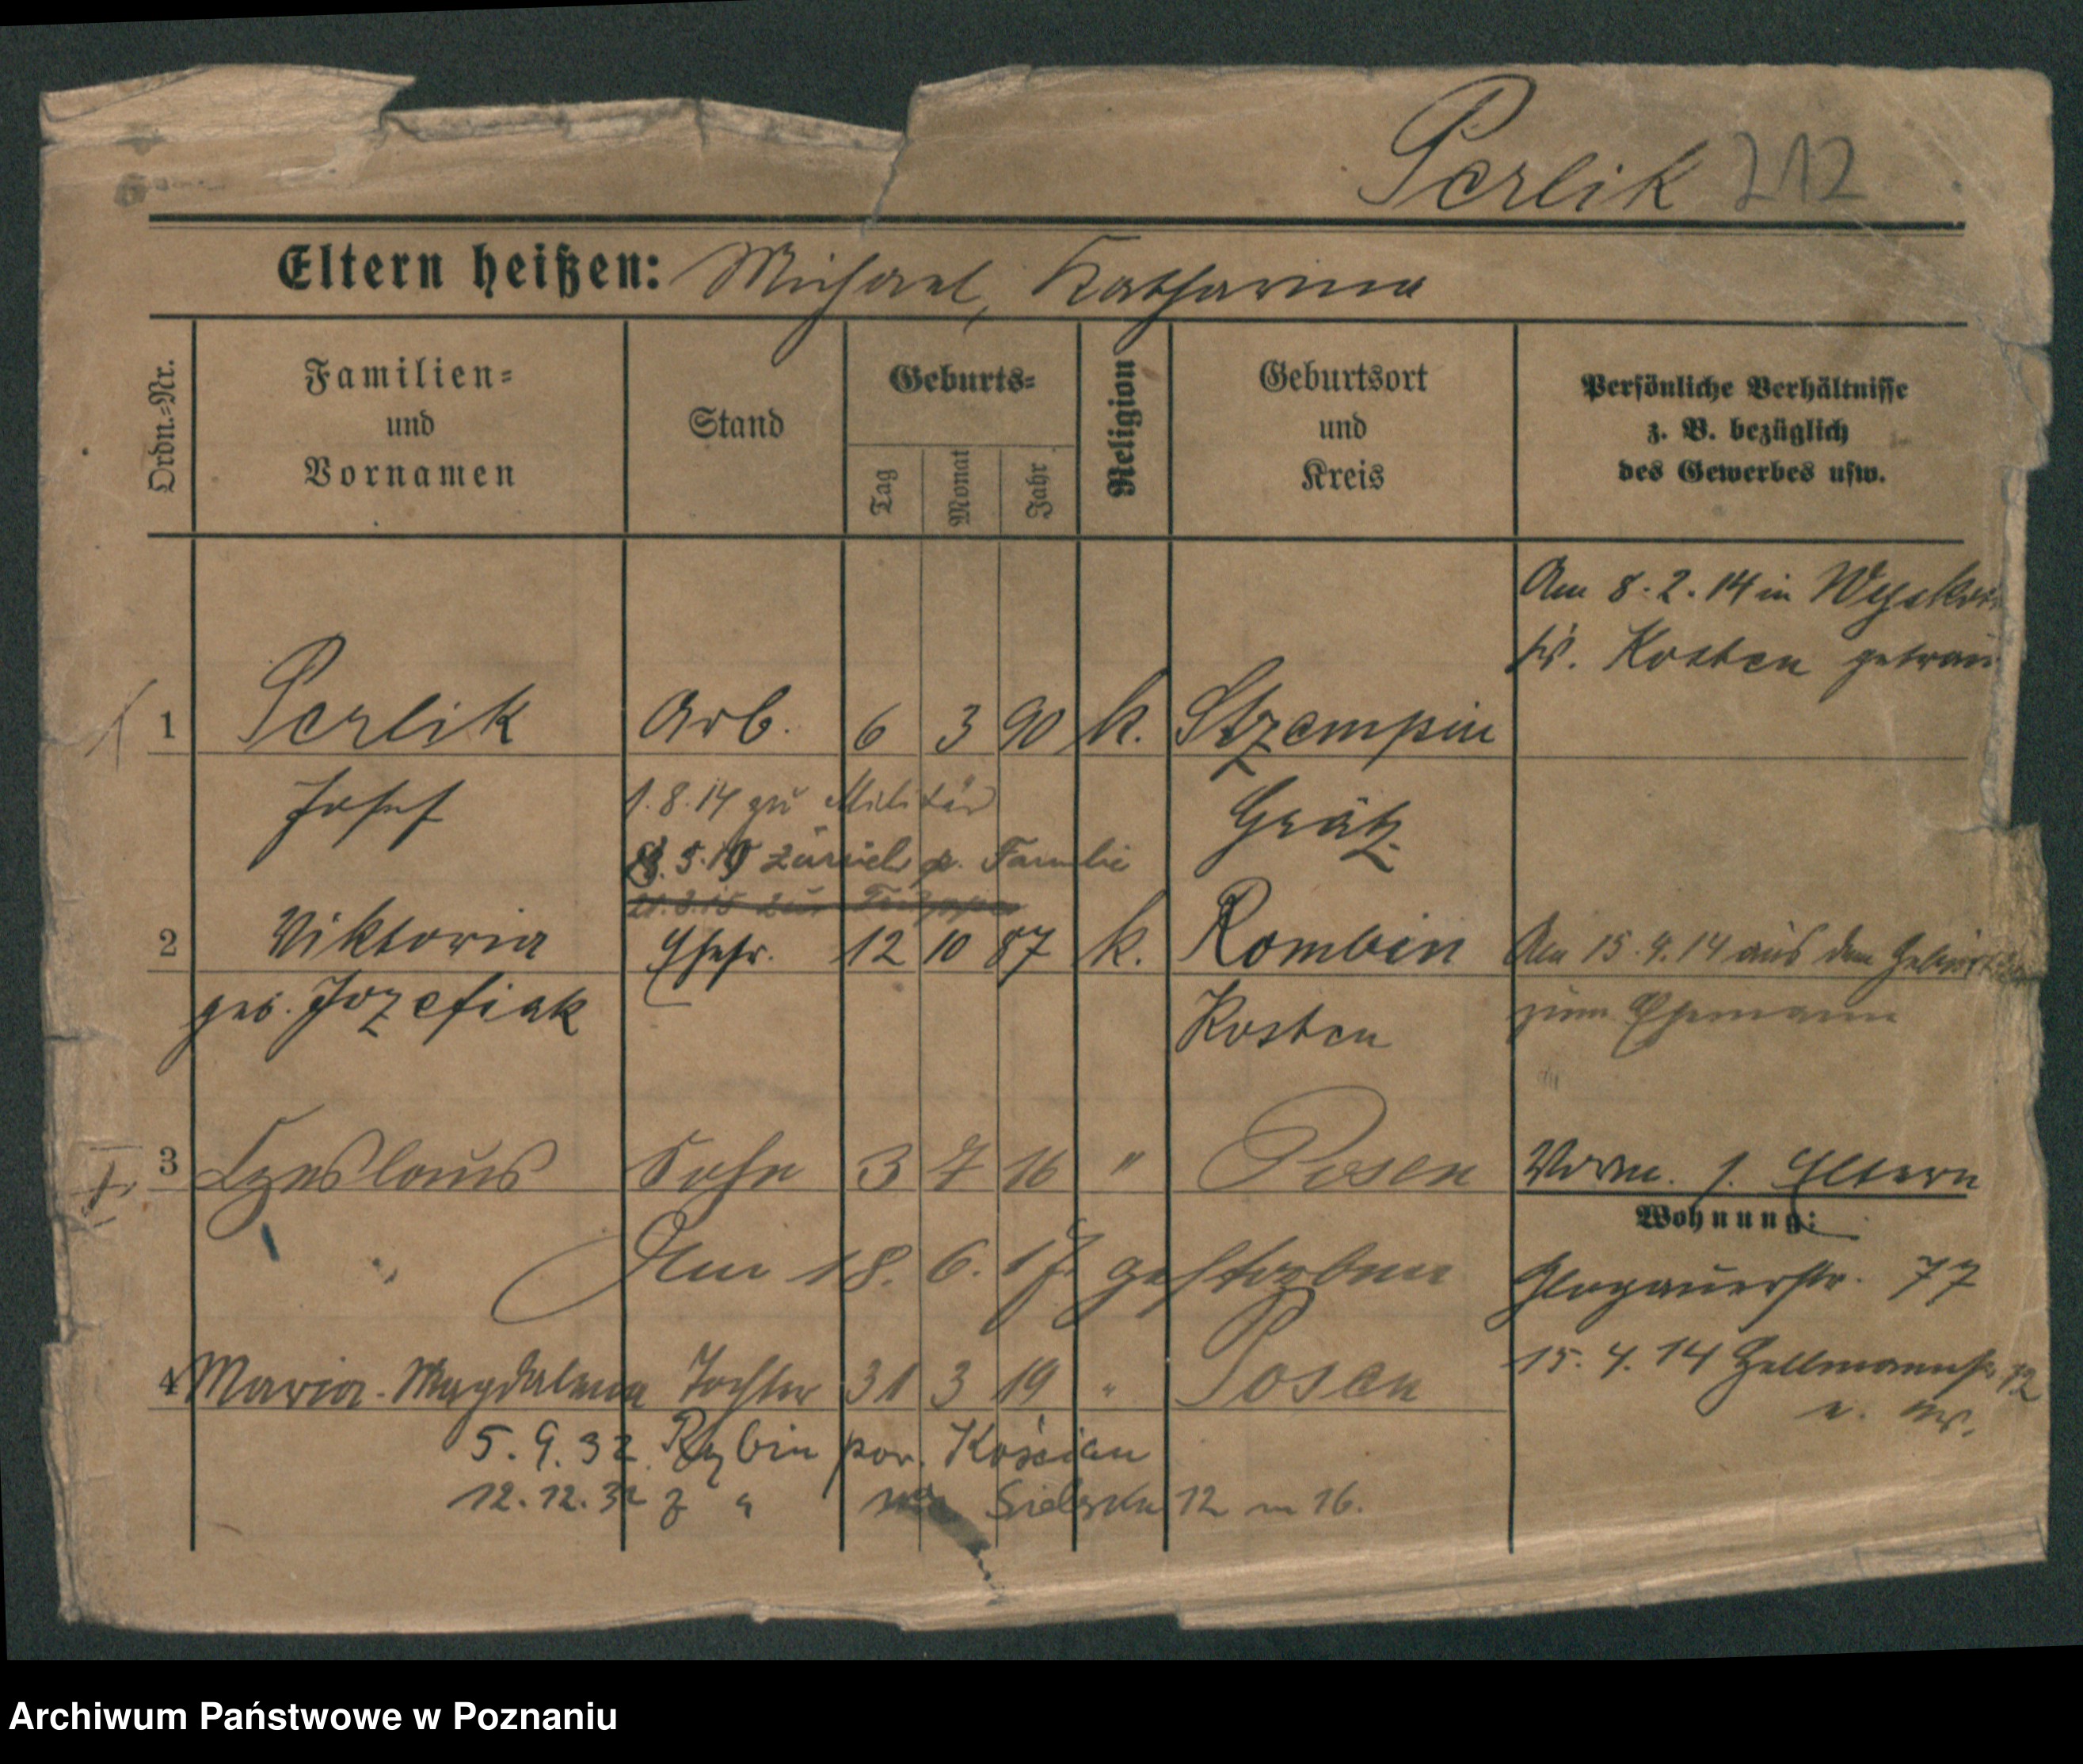 Perlik 212
Eltern heißen: Michael, Katharina
Ordn.-Nr.
Familien-
und
Vornamen
Stand
Geburts-
Tag
Monat
Jahr
Religion
Geburtsort
und
Kreis
Persönliche Verhältnisse
z. B. bezüglich
des Gewerbes usw.
Am 8.2.14 in
Kr. Kosten getrau
1 Perlik Arb. 6 3 90 k. Stzempin
Josef 1.8.14 zu Militär Grätz
5.19 zurück z. Familie
2 Viktoria Ehefr. 12 10 87 k. Rombin Am 15.4.14 aus dem
geb. Jozefiak Kosten zum Ehemann
3 Czeslaus Sohn 3 7 16 " Posen Vorm. s. Eltern
Wohnung:
Am 18. 6. 17 gestorben Glogauerstr. 77
4 Maria-Magdalena Tochter 31 3 19 " Posen 15.4.14 12
5.9.32 Rąbin pow. Kościan
12.12.32 z " Sielska 12 m 16.
Archiwum Państwowe w Poznaniu